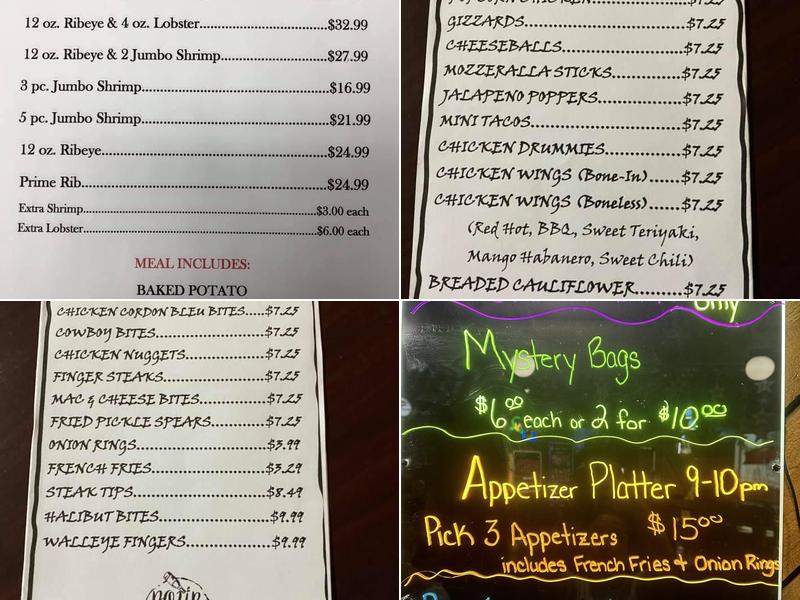 12 oz. Ribeye & 4 oz. Lobster..............................$32.99
12 oz. Ribeye & 2 Jumbo Shrimp.........................$27.99
3 pc. Jumbo Shrimp.............................................$16.99
5 pc. Jumbo Shrimp.............................................$21.99
12 oz. Ribeye........................................................$24.99
Prime Rib.............................................................$24.99
Extra Shrimp..........................................................................$3.00 each
Extra Lobster.........................................................................$6.00 each
MEAL INCLUDES:
BAKED POTATO
POPCORN CHICKEN...............$7.25
GIZZARDS..........................$7.25
CHEESEBALLS....................$7.25
MOZZERALLA STICKS...........$7.25
JALAPENO POPPERS.............$7.25
MINI TACOS........................$7.25
CHICKEN DRUMMIES............$7.25
CHICKEN WINGS (Bone-In).....$7.25
CHICKEN WINGS (Boneless)......$7.25
(Red Hot, BBQ, Sweet Teriyaki,
Mango Habanero, Sweet Chili)
BREADED CAULIFLOWER.........$7.25
CHICKEN CORDON BLEU BITES.....$7.25
COWBOY BITES.......................$7.25
CHICKEN NUGGETS.................$7.25
FINGER STEAKS.....................$7.25
MAC & CHEESE BITES..............$7.25
FRIED PICKLE SPEARS............$7.25
ONION RINGS.........................$3.99
FRENCH FRIES.......................$3.29
STEAK TIPS...........................$8.49
HALIBUT BITES......................$9.99
WALLEYE FINGERS.................$9.99
only
Mystery Bags
$6.00 each or 2 for $10.00
Appetizer Platter 9-10pm
Pick 3 Appetizers $15.00
includes French Fries & Onion Rings